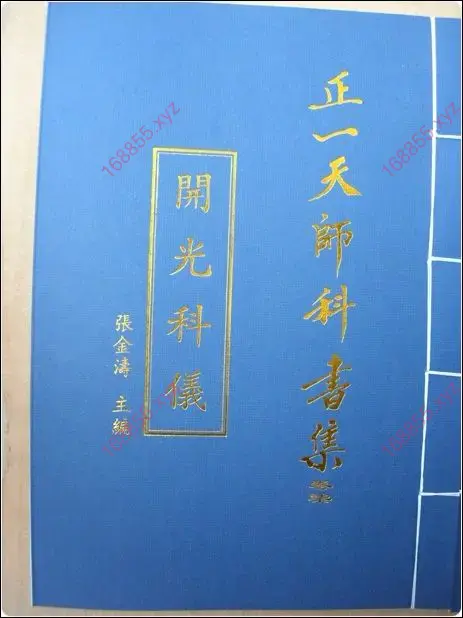 正一天師科書集
開光科儀
張金濤 主編
168855.xyz
168855.xyz
168855.xyz
168855.xyz
168855.xyz
168855.xyz